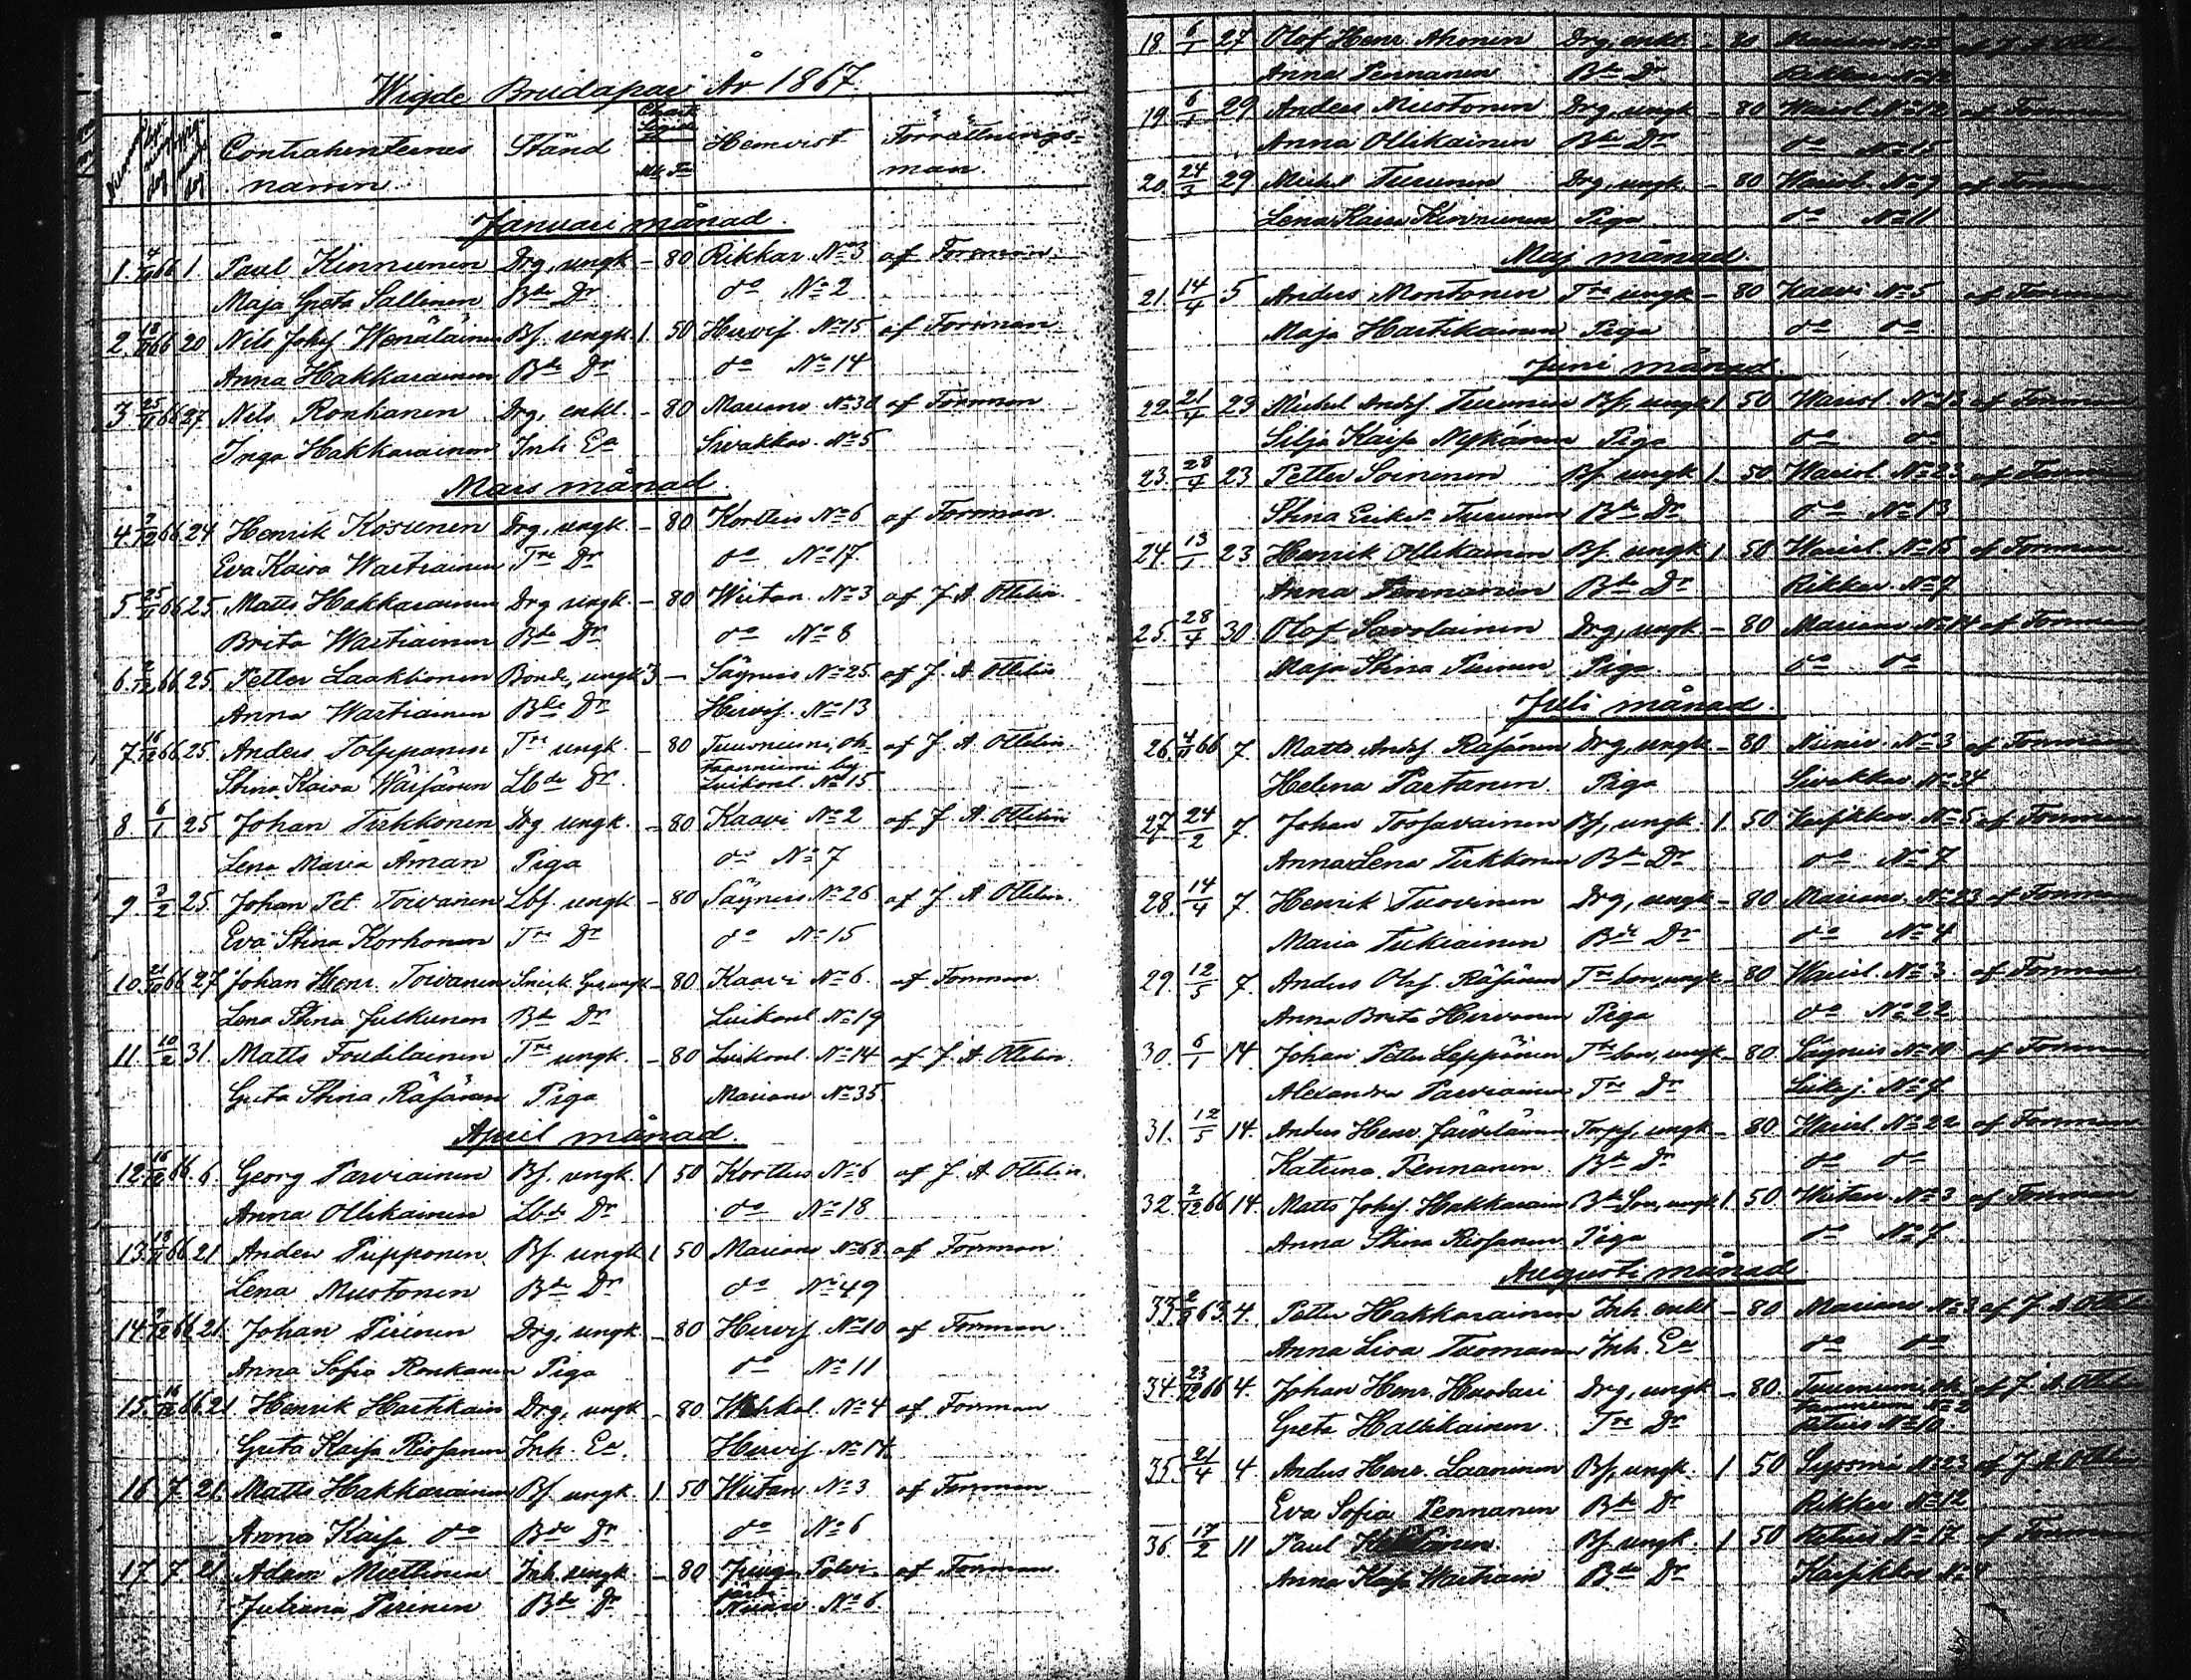 Wigde Brudapar År 1867.
Contrahenternes namn. Stånd Hemvist Förrättningsman.
Januari månad.
1. 4/11 66 1. Paul Kinnunen Drg, ungk. - 80 Rikkar. No 3 af Forsman
Maja Greta Sallinen Bde Dr do No 2
2. 18/11 66 20 Nils Johs Wenäläinen Bs. ungk. 1. 50 Hirvis. No 15 af Forsman
Anna Hakkarainen Bde Dr do No 14
3. 25/11 66 27 Nils Ronkanen Drg, enkl. - 80 Marians No 30 af Forsman
Inga Hakkarainen Inh. Ea Sivakka. No 5
Mars månad.
4. 2/12 66 24 Henrik Kosunen Drg, ungk. - 80 Kortteis No 6 af Forsman
Eva Kaisa Wartiainen Tre Dr do No 17.
5. 25/11 66 25. Matts Hakkarainen Drg ungk. - 80 Wiitan. No 3 af J. A Ottelin.
Brita Wartiainen Bde Dr do No 8
6. 2/12 66 25. Petter Laakkonen Bonde, ungk 3 - Säyneis No 25. af J. A Ottelin
Anna Wartiainen Bde Dr Hirvis. No 13
7. 16/12 66 25. Anders Tolppanen Tre ungk. - 80 af J. A Ottelin
Stina Kaisa Wäisänen Lbde Dr Luikonl. No 15.
8. 6/1 25. Johan Tirkkonen Drg ungk. - 80 Kaavi No 2 af J. A. Ottelin
Lena Maria Åman Piga do No 7
9. 2/2 25. Johan Pet. Toivanen Lbs. ungk - 80 Säyneis No 26 af J. A Ottelin.
Eva Stina Korhonen Tre Dr do No 15
10. 66 27 Johan Henr. Toivanen - 80 Kaavi No 6. af Forsman
Lena Stina Julkunen Bde Dr Luikonl. No 19
11. 10/2 31. Matts Toudilainen Tre ungk. - 80 Luikonl. No 14 af J. A. Ottelin.
Greta Stina Räsänen Piga Marians No 35
April månad.
12. 16/12 66. 6. Georg Parviainen Bs. ungk. 1 50 Kortteis No 6 af J. A. Ottelin.
Anna Ollikainen Lbde Dr do No 18
13. 18/11 66 21 Anders Piipponen. Bs. ungk 1 50 Marians No 68. af Forsman
Lena Mustonen Bde Dr do No 49
14. 66 21 Johan Piirinen Drg, ungk - 80 Hirvis. No 10 af Forsman
Anna Sofia Ronkanen Piga do No 11
15. 16/12 66. 21. Henrik Hartikain Drg, ungk - 80 No 4 af Forsman
Greta Kaisa Riissanen Inh. Ea. Hirvis. No 14.
16. 7. 21. Matts Hakkarainen Bs. ungk. 1. 50 Wiitan. No 3 af Forsman
Anna Kaisa do Bde Dr do No 6
17. 7. 21. Adam Miettinen Inh. ungk. - 80 af Forsman.
Juliana Piirinen Bde Dr No 6.
18. 6/1 27 Olof Henr. Ahonen Drg, enkl. - 80
Anna Pennanen Bde Dr
19. 6/1 29 Anders Mustonen Drg, ungk - 80 Wariol. No 12 af Forsman
Anna Ollikainen Bde Dr do No 15
20. 24/3 29 Michel Turunen Drg, ungk - 80 Wariol. No 9 af Forsman
Lena Kaisa Kinnunen Piga do No 11
Maj månad.
21. 14/4 5 Anders Montonen Tre ungk - 80 Kaavi No 5 af Forsman
Maja Hartikainen Piga do do
Juni månad.
22. 21/4 23 Michel Ands Turunen Bs, ungk 1. 50 Wariol. No 13 af Forsman
Silja Kaisa Nykänen Piga do do
23. 28/4 23 Petter Soininen Bs. ungk 1. 50. Wariol. No 23 af Forsman
Stina Turunen Bde Dr do No 13
24. 13/1 23 Henrik Ollikainen Bs. ungk 1. 50 Wariol. No 15 af Forsman
Anna Pennanen Bde Dr Rikkar. No 7
25. 28/4 30 Olof Savolainen Drg, ungk - 80 Marians No 14 af Forsman
Maja Stina Piirinen Piga do do
Juli månad.
26. 4/11 66 7. Matts Ands. Räsänen Drg, ungk - 80. No 3 af Forsman
Helena Partanen Piga Sivakka. No 34
27. 24/2 7. Johan Toosavainen Bs, ungk. 1. 50 No 5 af Forsman
Anna Lena Tirkkonen Bde Dr do No 7
28. 14/4 7. Henrik Tuovinen Drg, ungk - 80 Marians. No 23 af Forsman
Maria Tukiainen Bde Dr do No 4
29. 12/5 7. Anders Olof. Räsänen Tre Son, ungk - 80 Wariol. No 3. af Forsman
Anna Brita Hirvonen Piga do No 22
30. 6/1 14. Johan Petter Leppänen Tre Son, ungk - 80. Säyneis No 10 af Forsman
Alexandra Parviainen Tre Dr No 4
31. 12/5 14. Anders Henr. Jäiväläinen Torps, ungk - 80. Wariol. No 22 af Forsman
Katrina Pennanen Bde Dr do do
32. 2/12 66 14. Matts Johs. Hakkarain Bde Son, ungk 1. 50. Wiitan. No 3 af Forsman
Anna Stina Riissanen Piga do No 7
Augusti månad
33. 63. 4. Petter Hakkarainen Inh. enkl. - 80. Marians af J. A Ottelin
Anna Lisa Tuomanen Inh. Ea do do
34. 23/12 66 4. Johan Henr. Drg, ungk - 80. af J. A. Ottelin
Greta Tre Dr No 10.
35. 21/4 4 Anders Henr. Laaninen Bs, ungk. 1 50 No 23 af J. A. Ottelin
Eva Sofia Pennanen Bde Dr Rikkar No 12
36. 17/2 11 Paul Bs. ungk. 1 50 No 17 af Forsman
Anna Kaisa Wartiain Bde Dr No 4